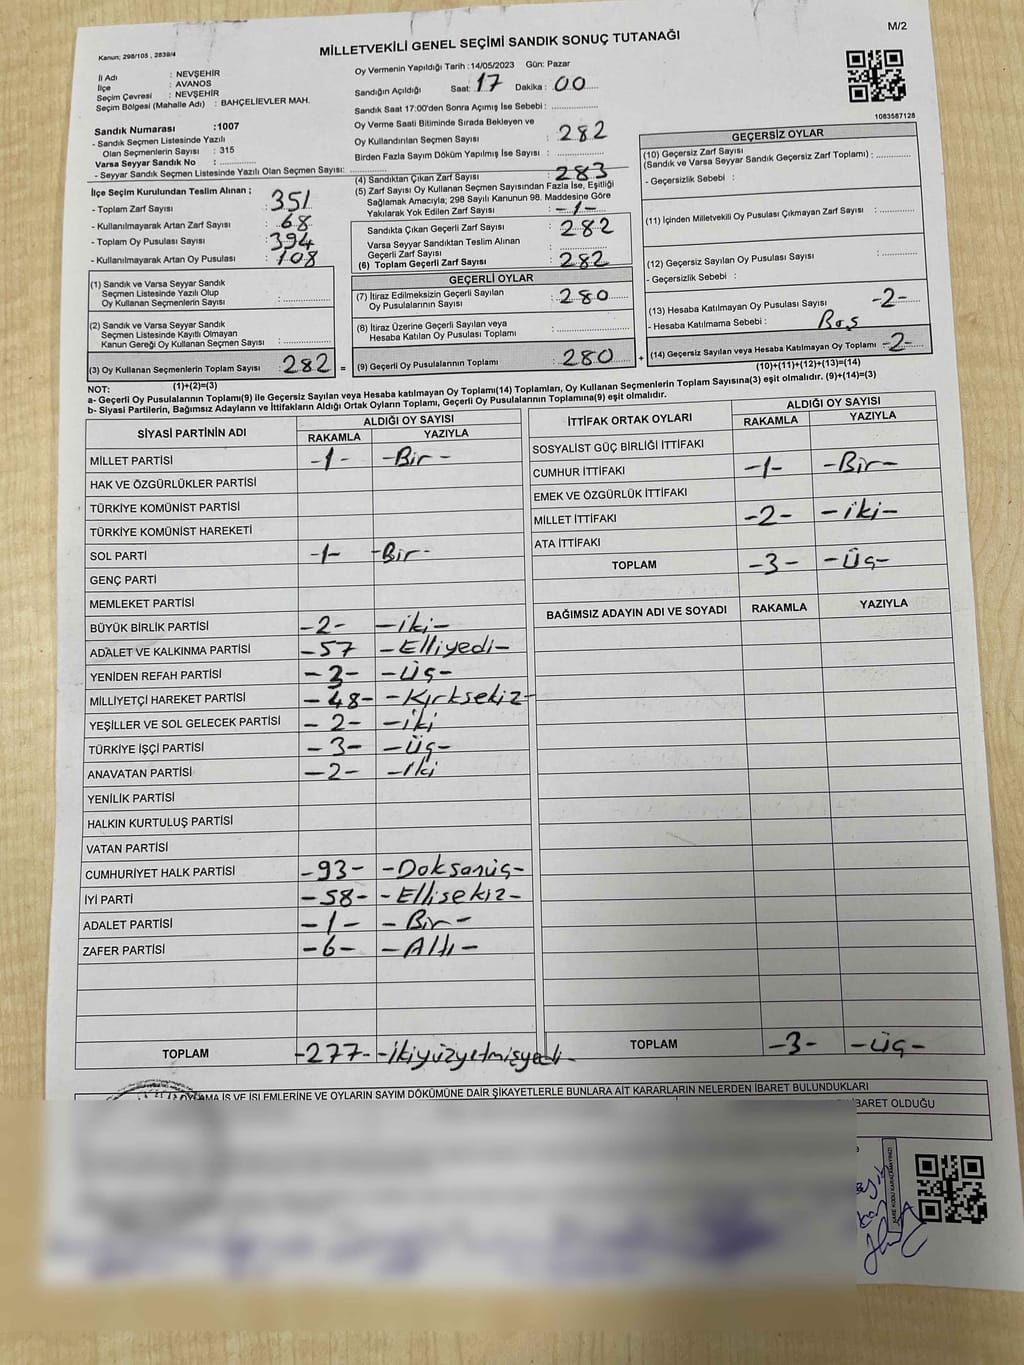 Kanun; 298/105 , 2839/4
MİLLETVEKİLİ GENEL SEÇİMİ SANDIK SONUÇ TUTANAĞI
M/2
İl Adı : NEVŞEHİR
İlçe : AVANOS
Seçim Çevresi : NEVŞEHİR
Seçim Bölgesi (Mahalle Adı) : BAHÇELİEVLER MAH.
Sandık Numarası :1007
- Sandık Seçmen Listesinde Yazılı
Olan Seçmenlerin Sayısı : 315
Varsa Seyyar Sandık No :
- Seyyar Sandık Seçmen Listesinde Yazılı Olan Seçmen Sayısı:
Oy Vermenin Yapıldığı Tarih :14/05/2023 Gün: Pazar
Sandığın Açıldığı Saat: 17 Dakika : 00
Sandık Saat 17:00'den Sonra Açımış İse Sebebi :
Oy Verme Saati Bitiminde Sırada Bekleyen ve
Oy Kullandırılan Seçmen Sayısı : 282
Birden Fazla Sayım Döküm Yapılmış İse Sayısı :
1083587128
İlçe Seçim Kurulundan Teslim Alınan ;
- Toplam Zarf Sayısı : 351
- Kullanılmayarak Artan Zarf Sayısı : 68
- Toplam Oy Pusulası Sayısı : 394
- Kullanılmayarak Artan Oy Pusulası : 108
(1) Sandık ve Varsa Seyyar Sandık
Seçmen Listesinde Yazılı Olup
Oy Kullanan Seçmenlerin Sayısı :
(2) Sandık ve Varsa Seyyar Sandık
Seçmen Listesinde Kayıtlı Olmayan
Kanun Gereği Oy Kullanan Seçmen Sayısı :
(3) Oy Kullanan Seçmenlerin Toplam Sayısı : 282 =
(1)+(2)=(3)
(4) Sandıktan Çıkan Zarf Sayısı : 283
(5) Zarf Sayısı Oy Kullanan Seçmen Sayısından Fazla İse, Eşitliği
Sağlamak Amacıyla; 298 Sayılı Kanunun 98. Maddesine Göre
Yakılarak Yok Edilen Zarf Sayısı : -1-
Sandıkta Çıkan Geçerli Zarf Sayısı : 282
Varsa Seyyar Sandıktan Teslim Alınan
Geçerli Zarf Sayısı :
(6) Toplam Geçerli Zarf Sayısı : 282
GEÇERLİ OYLAR
(7) İtiraz Edilmeksizin Geçerli Sayılan
Oy Pusulalarının Sayısı : 280
(8) İtiraz Üzerine Geçerli Sayılan veya
Hesaba Katılan Oy Pusulası Toplamı :
(9) Geçerli Oy Pusulalarının Toplamı : 280 +
GEÇERSİZ OYLAR
(10) Geçersiz Zarf Sayısı
(Sandık ve Varsa Seyyar Sandık Geçersiz Zarf Toplamı) :
- Geçersizlik Sebebi :
(11) İçinden Milletvekili Oy Pusulası Çıkmayan Zarf Sayısı :
(12) Geçersiz Sayılan Oy Pusulası Sayısı :
- Geçersizlik Sebebi :
(13) Hesaba Katılmayan Oy Pusulası Sayısı : -2-
- Hesaba Katılmama Sebebi : Boş
(14) Geçersiz Sayılan veya Hesaba Katılmayan Oy Toplamı : -2-
(10)+(11)+(12)+(13)=(14)
NOT:
a- Geçerli Oy Pusulalarının Toplamı(9) ile Geçersiz Sayılan veya Hesaba katılmayan Oy Toplamı(14) Toplamları, Oy Kullanan Seçmenlerin Toplam Sayısına(3) eşit olmalıdır. (9)+(14)=(3)
b- Siyasi Partilerin, Bağımsız Adayların ve İttifakların Aldığı Ortak Oyların Toplamı, Geçerli Oy Pusulalarının Toplamına(9) eşit olmalıdır.
SİYASİ PARTİNİN ADI ALDIĞI OY SAYISI
RAKAMLA YAZIYLA
MİLLET PARTİSİ -1- -Bir-
HAK VE ÖZGÜRLÜKLER PARTİSİ
TÜRKİYE KOMÜNİST PARTİSİ
TÜRKİYE KOMÜNİST HAREKETİ
SOL PARTİ -1- -Bir-
GENÇ PARTİ
MEMLEKET PARTİSİ
BÜYÜK BİRLİK PARTİSİ -2- -iki-
ADALET VE KALKINMA PARTİSİ -57 -Elliyedi-
YENİDEN REFAH PARTİSİ -3- -Üç-
MİLLİYETÇİ HAREKET PARTİSİ -48- -Kırksekiz-
YEŞİLLER VE SOL GELECEK PARTİSİ -2- -iki
TÜRKİYE İŞÇİ PARTİSİ -3- -Üç-
ANAVATAN PARTİSİ -2- -iki
YENİLİK PARTİSİ
HALKIN KURTULUŞ PARTİSİ
VATAN PARTİSİ
CUMHURİYET HALK PARTİSİ -93- -Doksanüç-
İYİ PARTİ -58- -Ellisekiz-
ADALET PARTİSİ -1- -Bir-
ZAFER PARTİSİ -6- -Altı-
TOPLAM -277- -ikiyüzyetmişyedi-
İTTİFAK ORTAK OYLARI ALDIĞI OY SAYISI
RAKAMLA YAZIYLA
SOSYALİST GÜÇ BİRLİĞİ İTTİFAKI
CUMHUR İTTİFAKI -1- -Bir-
EMEK VE ÖZGÜRLÜK İTTİFAKI
MİLLET İTTİFAKI -2- -iki-
ATA İTTİFAKI
TOPLAM -3- -Üç-
BAĞIMSIZ ADAYIN ADI VE SOYADI RAKAMLA YAZIYLA
TOPLAM -3- -Üç-
OYLAMA İŞ VE İŞLEMLERİNE VE OYLARIN SAYIM DÖKÜMÜNE DAİR ŞİKAYETLERLE BUNLARA AİT KARARLARIN NELERDEN İBARET BULUNDUKLARI
İBARET OLDUĞU
KARE KODU KARALAMAYINIZ!